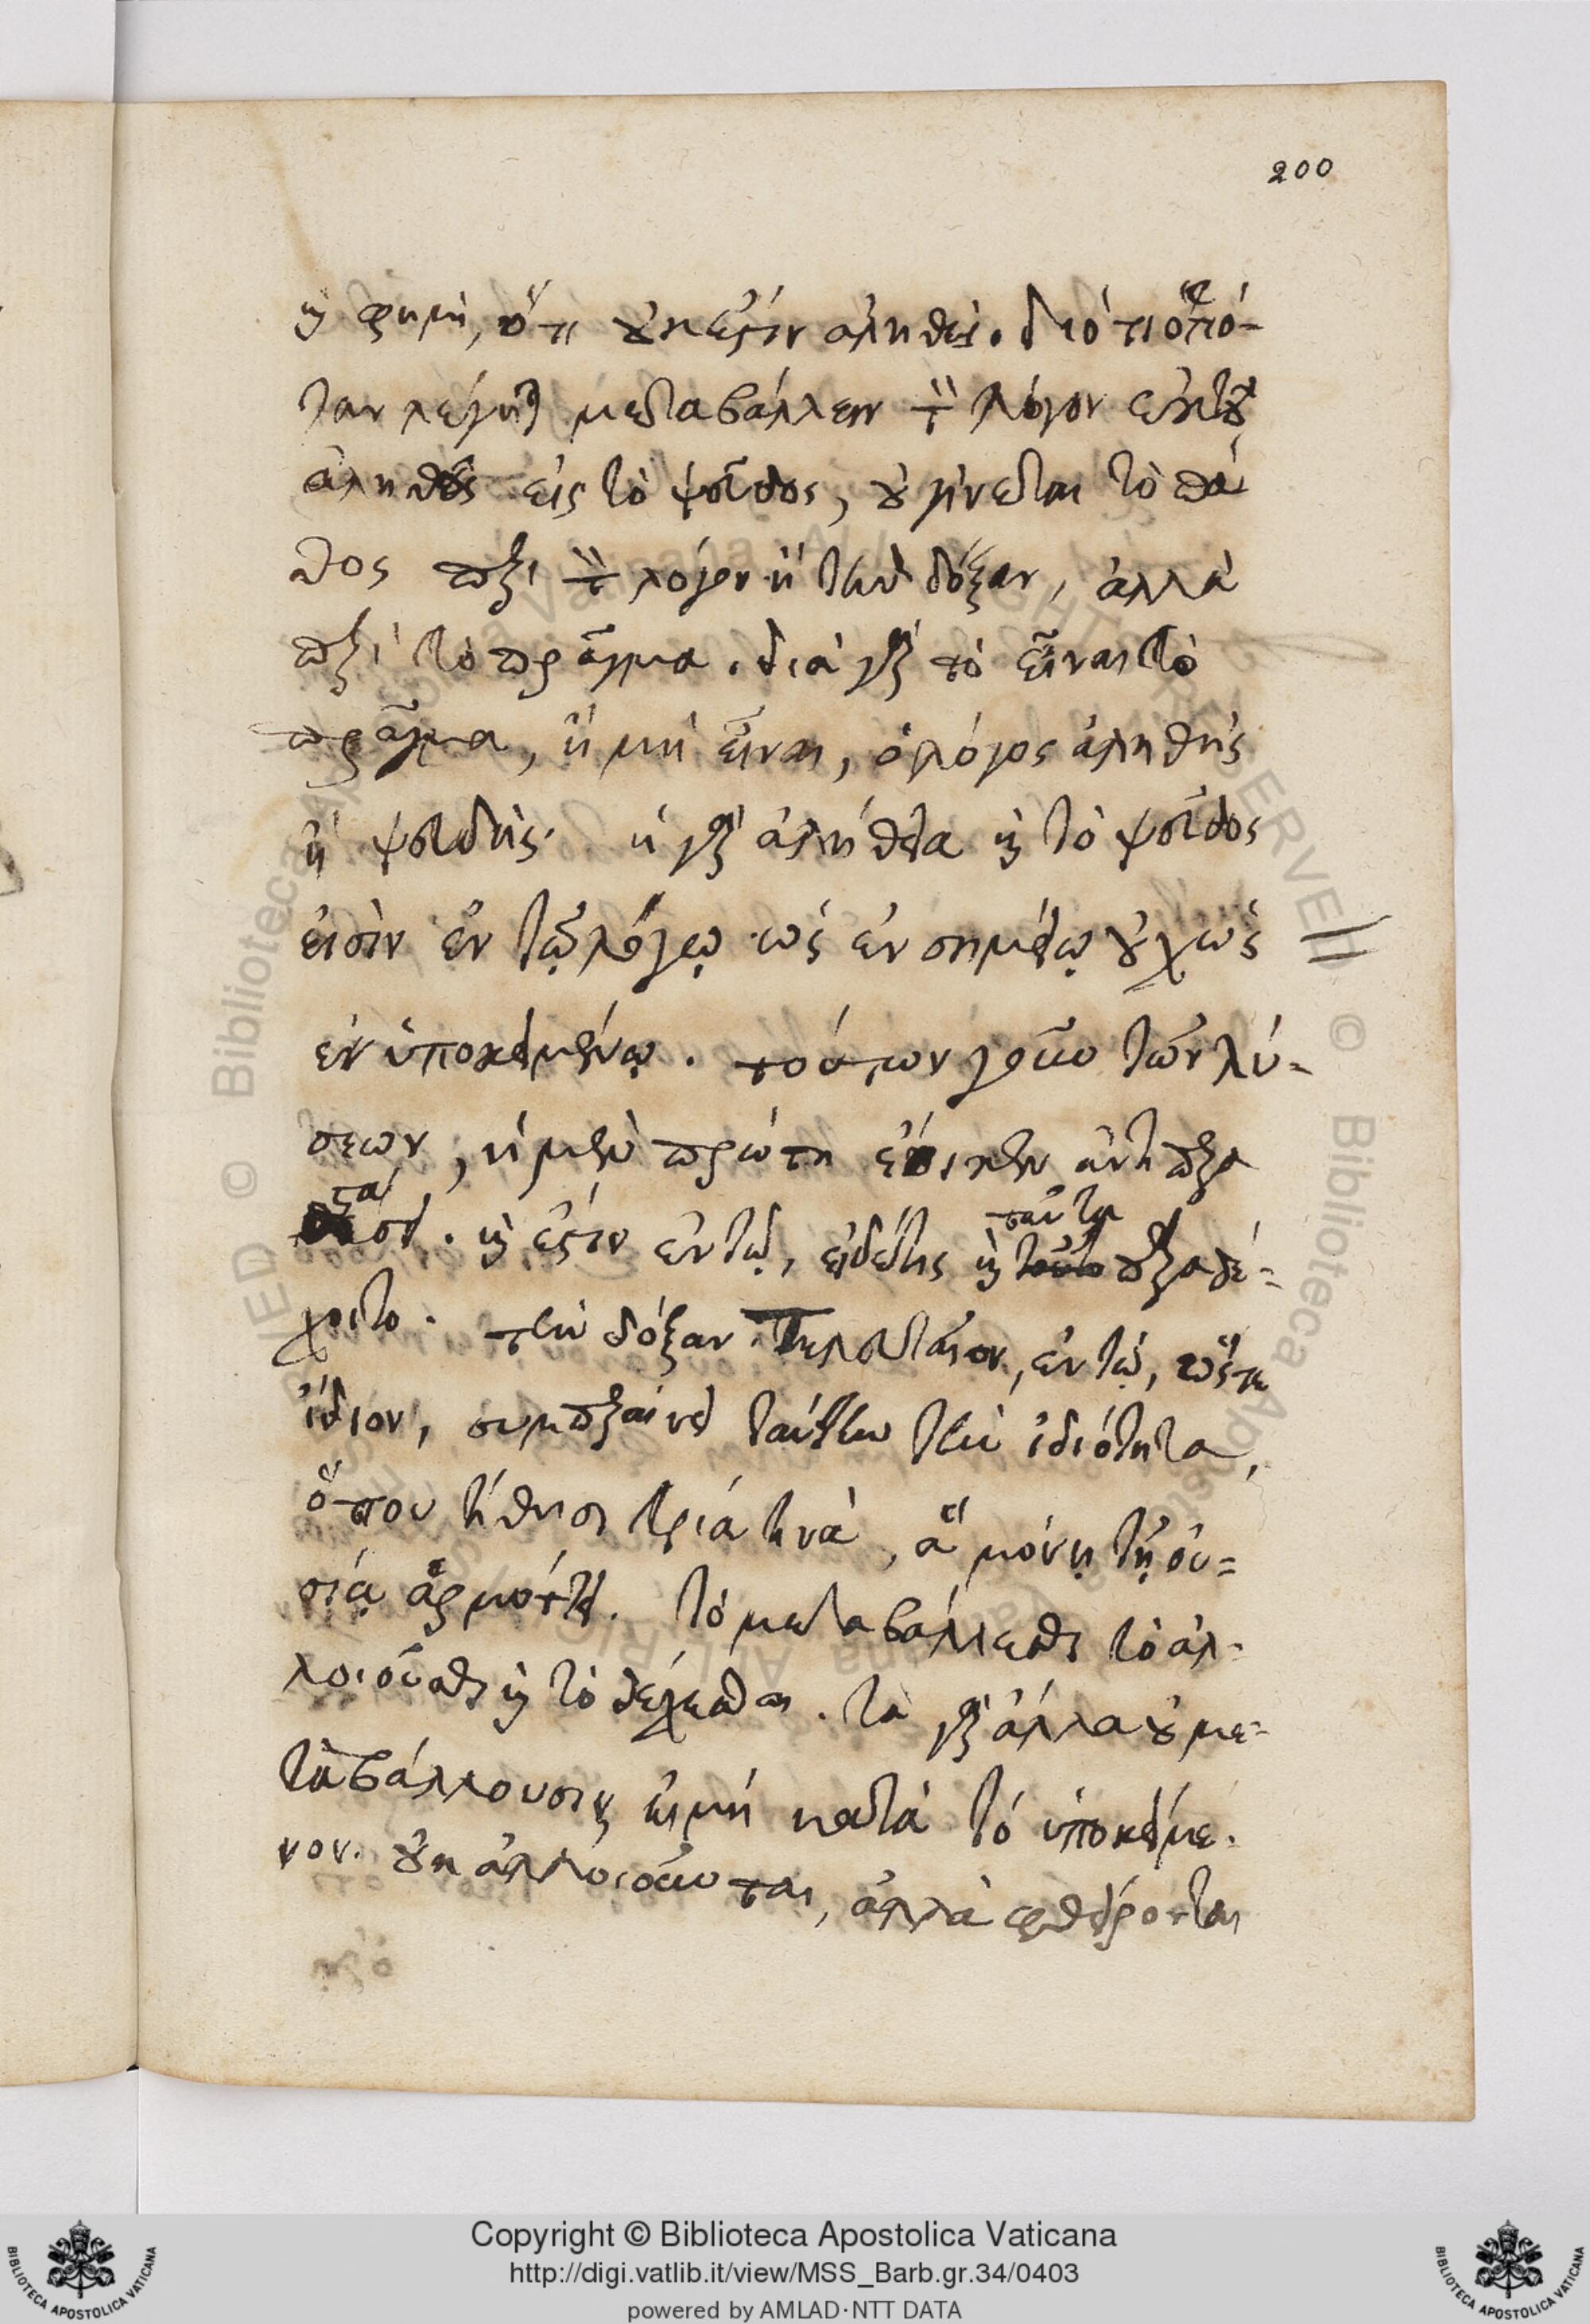 200
καὶ φημὶ, ὅτι οὐκ ἐστὶν ἀληθές. διότι ὁπό-
ταν λέγηται μεταβάλλειν τὸν λόγον ἐκ τοῦ
ἀληθοῦς εἰς τὸ ψεῦδος, οὐ γίνεται τὸ πά
θος περὶ τὸν λόγον ἢ τὴν δόξαν, ἀλλὰ
περὶ τὸ πρᾶγμα. διὰ γὰρ τὸ εἶναι τὸ
πρᾶγμα, ἢ μὴ εἶναι, ὁ λόγος ἀληθής
ἢ ψευδής. ἡ γὰρ ἀλήθεια καὶ τὸ ψεῦδος
εἰσὶν ἐν τῷ λόγῳ ὡς ἐν σημείῳ οὐχ ὡς
ἐν ὑποκειμένῳ. τούτων γοῦν τῶν λύ-
σεων, ἡ μὲν πρώτη
καὶ ἐστιν ἐν τῷ, εἰ δέ τις καὶ ταῦτα παραδέ-
χοιτο. τὴν δόξαν Τελευταῖον, ἐν τῷ, ὥστε
ἴδιον, συμπεραίνει ταύτην τὴν ἰδιότητα,
ὅπου τίθησι τρία τινὰ, ἃ μόνῃ τῇ οὐ-
σίᾳ ἁρμόττει. τὸ μεταβάλλεσθαι τὸ ἀλ-
λοιοῦσθαι καὶ τὸ δέχεσθαι. τὰ γὰρ ἄλλα οὐ με-
ταβάλλουσιν εἰ μή κατὰ τό ὑποκείμε-
νον. οὐκ ἀλλοιοῦνται, ἀλλὰ φθείρονται
Copyright © Biblioteca Apostolica Vaticana
http://digi.vatlib.it/view/MSS_Barb.gr.34/0403
powered by AMLAD·NTT DATA
BIBLIOTECA APOSTOLICA VATICANA
BIBLIOTECA APOSTOLICA VATICANA